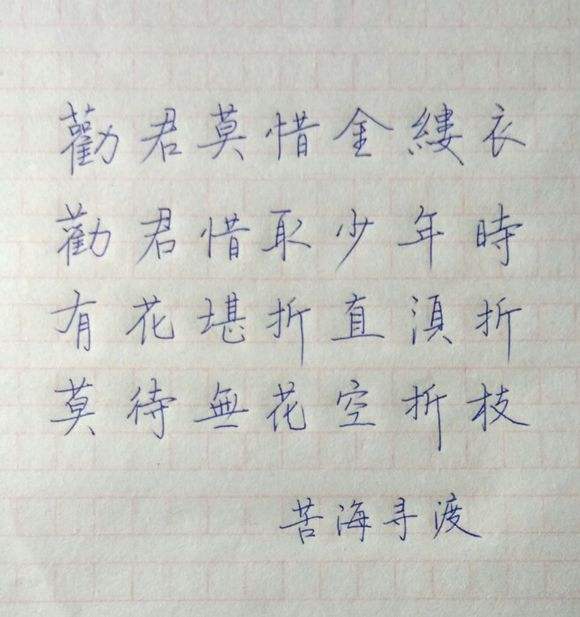 勸君莫惜金縷衣
勸君惜取少年時
有花堪折直湏折
莫待無花空折枝
苦海寻渡